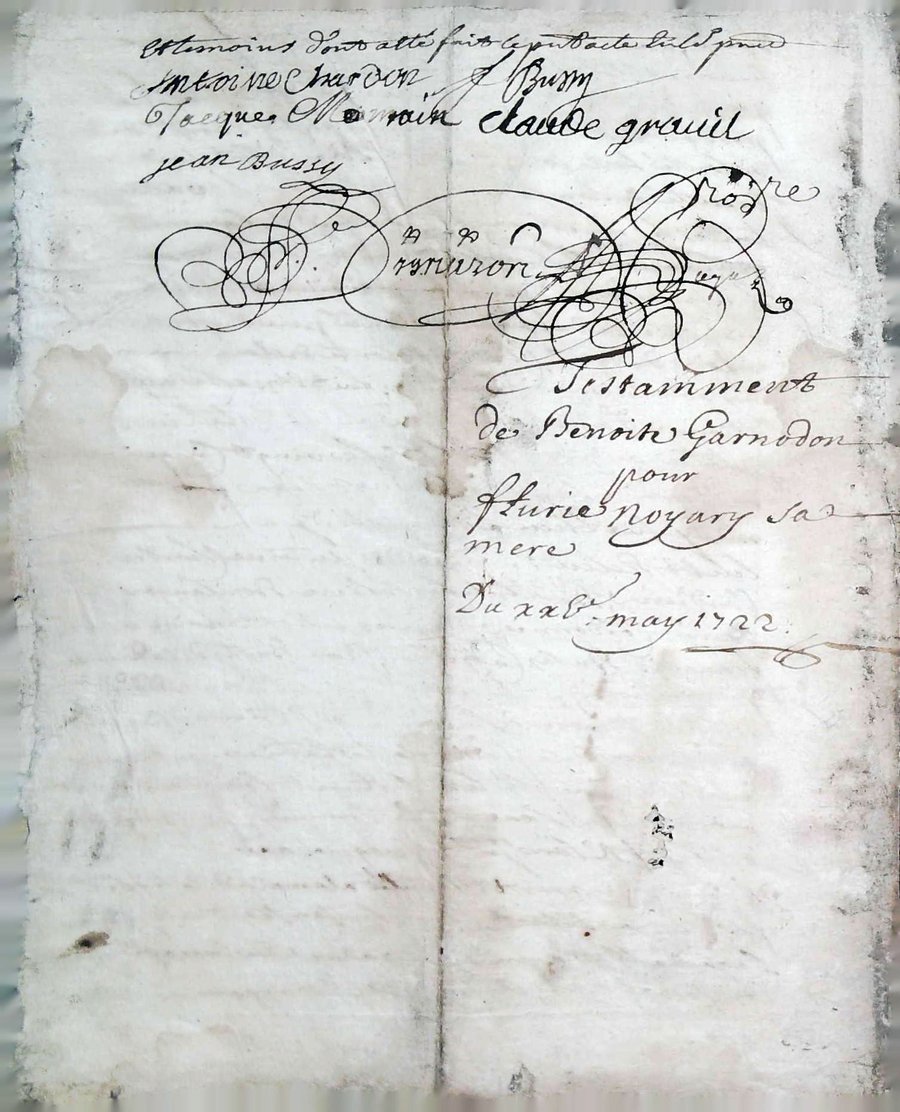 Et temoins dont a esté fait le pnt acte
Antoine Chardon Bussy
Jacque Claude grauil
jean Bussy
Testamment
de Benoite Garnodon
pour
fleurie Noyary sa
mere
Du xxbe may 1722